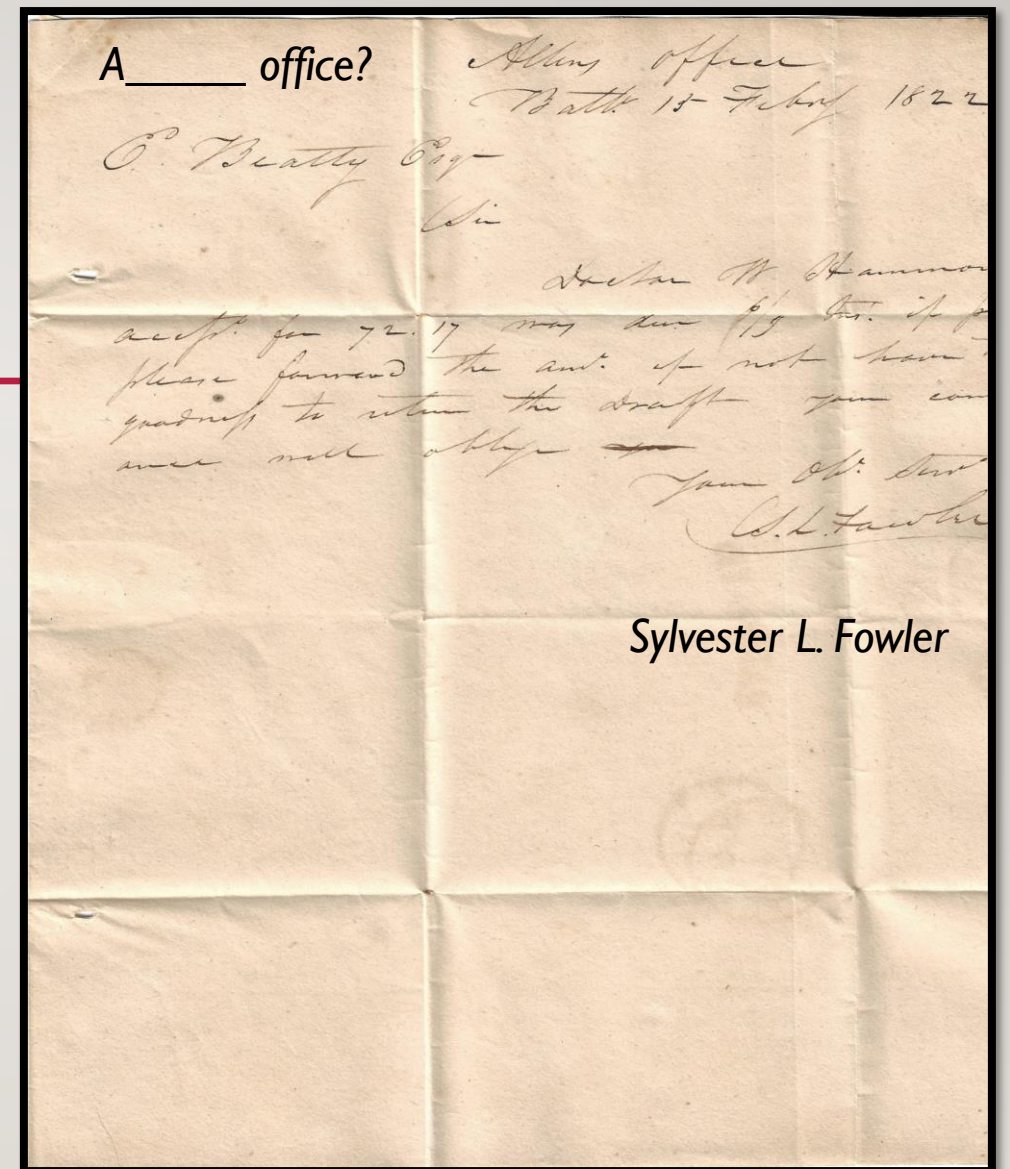 A______ office?
Allens office
Balt. 15 Feby 1822
E. Beatty Esqr
Sir
Doctor W Hammon
accept. for 72.17 was due 6/9 Ins. if p
please forward the amt. if not have
goodness to return the draft your com
ance will oblige
Your Obt. Servt
S. L. Fowler
Sylvester L. Fowler